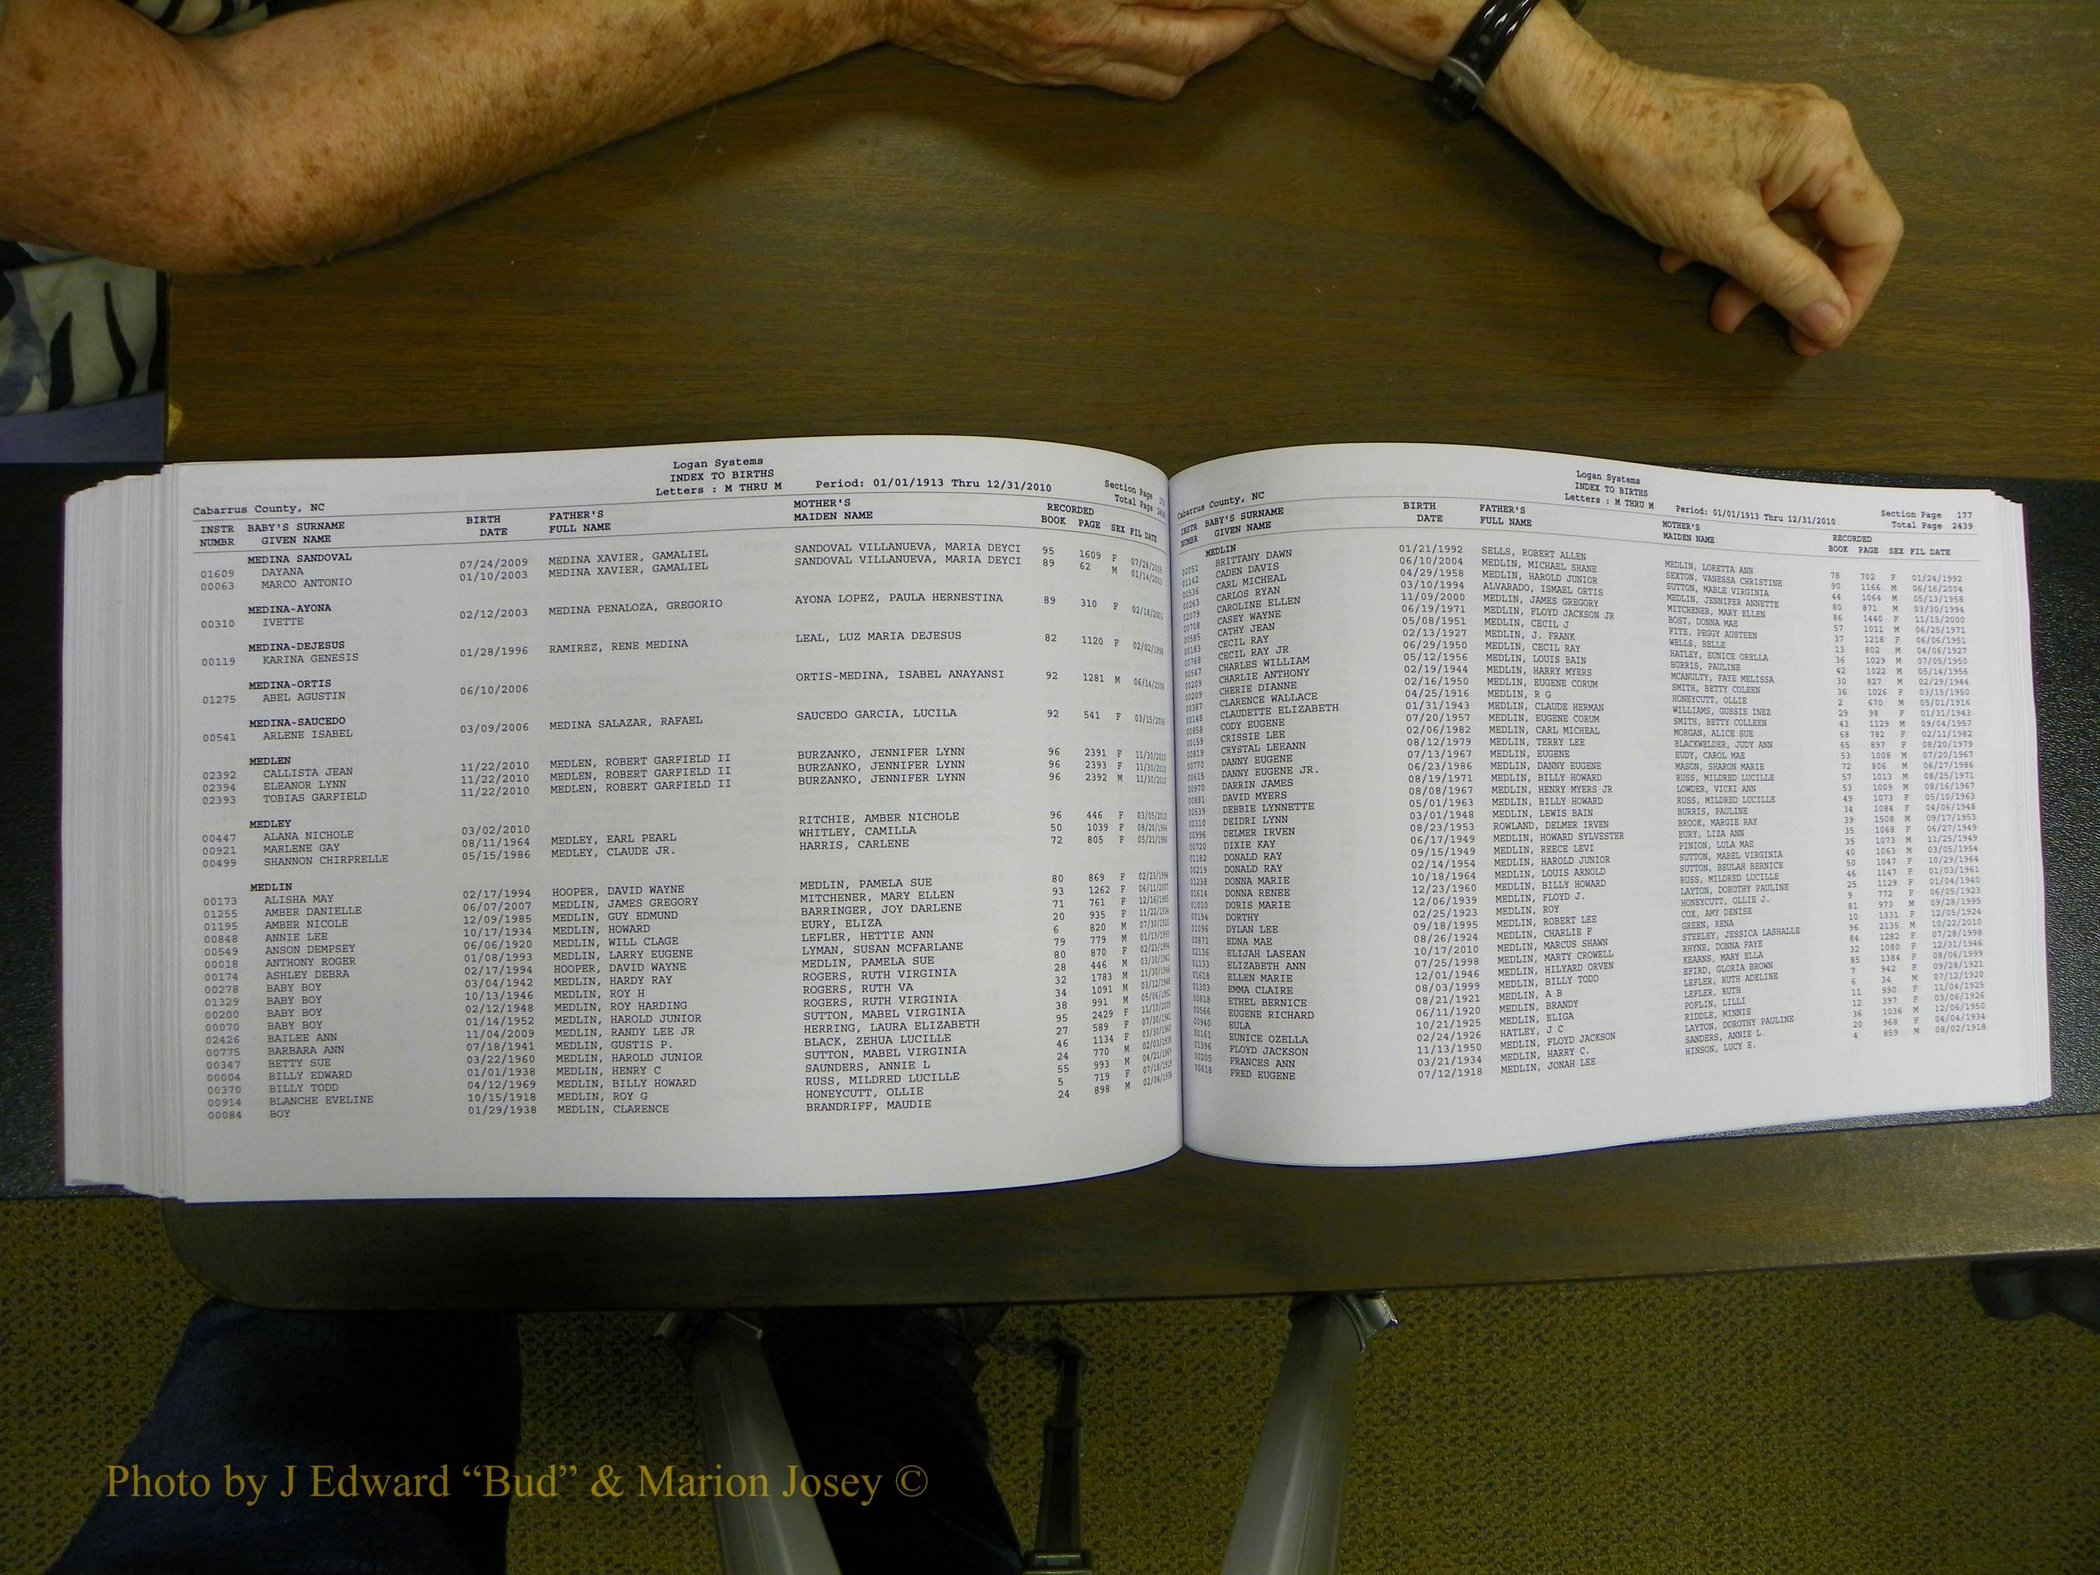 Logan Systems
INDEX TO BIRTHS
Cabarrus County, NC Letters : M THRU M Period: 01/01/1913 Thru 12/31/2010 Section Page Total Page
INSTR BABY'S SURNAME BIRTH FATHER'S MOTHER'S RECORDED
NUMBR GIVEN NAME DATE FULL NAME MAIDEN NAME BOOK PAGE SEX FIL DATE
MEDINA SANDOVAL
01609 DAYANA 07/24/2009 MEDINA XAVIER, GAMALIEL SANDOVAL VILLANUEVA, MARIA DEYCI 95 1609 F 07/28/2009
00063 MARCO ANTONIO 01/10/2003 MEDINA XAVIER, GAMALIEL SANDOVAL VILLANUEVA, MARIA DEYCI 89 62 M 01/14/2003
MEDINA-AYONA
00310 IVETTE 02/12/2003 MEDINA PENALOZA, GREGORIO AYONA LOPEZ, PAULA HERNESTINA 89 310 F 02/18/2003
MEDINA-DEJESUS
00119 KARINA GENESIS 01/28/1996 RAMIREZ, RENE MEDINA LEAL, LUZ MARIA DEJESUS 82 1120 F 02/02/1996
MEDINA-ORTIS
01275 ABEL AGUSTIN 06/10/2006 ORTIS-MEDINA, ISABEL ANAYANSI 92 1281 M 06/14/2006
MEDINA-SAUCEDO
00541 ARLENE ISABEL 03/09/2006 MEDINA SALAZAR, RAFAEL SAUCEDO GARCIA, LUCILA 92 541 F 03/15/2006
MEDLEN
02392 CALLISTA JEAN 11/22/2010 MEDLEN, ROBERT GARFIELD II BURZANKO, JENNIFER LYNN 96 2391 F 11/30/2010
02394 ELEANOR LYNN 11/22/2010 MEDLEN, ROBERT GARFIELD II BURZANKO, JENNIFER LYNN 96 2393 F 11/30/2010
02393 TOBIAS GARFIELD 11/22/2010 MEDLEN, ROBERT GARFIELD II BURZANKO, JENNIFER LYNN 96 2392 M 11/30/2010
MEDLEY
00447 ALANA NICHOLE 03/02/2010 RITCHIE, AMBER NICHOLE 96 446 F 03/05/2010
00921 MARLENE GAY 08/11/1964 MEDLEY, EARL PEARL WHITLEY, CAMILLA 50 1039 F 08/20/1964
00499 SHANNON CHIRPRELLE 05/15/1986 MEDLEY, CLAUDE JR. HARRIS, CARLENE 72 805 F 05/21/1986
MEDLIN
00173 ALISHA MAY 02/17/1994 HOOPER, DAVID WAYNE MEDLIN, PAMELA SUE 80 869 F 02/23/1994
01255 AMBER DANIELLE 06/07/2007 MEDLIN, JAMES GREGORY MITCHENER, MARY ELLEN 93 1262 F 06/11/2007
01195 AMBER NICOLE 12/09/1985 MEDLIN, GUY EDMUND BARRINGER, JOY DARLENE 71 761 F 12/16/1985
00848 ANNIE LEE 10/17/1934 MEDLIN, HOWARD EURY, ELIZA 20 935 F 11/22/1934
00549 ANSON DEMPSEY 06/06/1920 MEDLIN, WILL CLAGE LEFLER, HETTIE ANN 6 820 M 07/30/1920
00018 ANTHONY ROGER 01/08/1993 MEDLIN, LARRY EUGENE LYMAN, SUSAN MCFARLANE 79 779 M 01/13/1993
00174 ASHLEY DEBRA 02/17/1994 HOOPER, DAVID WAYNE MEDLIN, PAMELA SUE 80 870 F 02/23/1994
00278 BABY BOY 03/04/1942 MEDLIN, HARDY RAY ROGERS, RUTH VIRGINIA 28 446 M 03/30/1942
01329 BABY BOY 10/13/1946 MEDLIN, ROY H ROGERS, RUTH VA 32 1783 M 11/30/1946
00200 BABY BOY 02/12/1948 MEDLIN, ROY HARDING ROGERS, RUTH VIRGINIA 34 1091 M 03/12/1948
00070 BABY BOY 01/14/1952 MEDLIN, HAROLD JUNIOR SUTTON, MABEL VIRGINIA 38 991 M 05/06/1952
02426 BAILEE ANN 11/04/2009 MEDLIN, RANDY LEE JR HERRING, LAURA ELIZABETH 95 2429 F 11/10/2009
00775 BARBARA ANN 07/18/1941 MEDLIN, GUSTIS P. BLACK, ZEHUA LUCILLE 27 589 F 07/30/1941
00347 BETTY SUE 03/22/1960 MEDLIN, HAROLD JUNIOR SUTTON, MABEL VIRGINIA 46 1134 F 03/30/1960
00004 BILLY EDWARD 01/01/1938 MEDLIN, HENRY C SAUNDERS, ANNIE L 24 770 M 02/03/1938
00370 BILLY TODD 04/12/1969 MEDLIN, BILLY HOWARD RUSS, MILDRED LUCILLE 55 993 M 04/21/1969
00914 BLANCHE EVELINE 10/15/1918 MEDLIN, ROY G HONEYCUTT, OLLIE 5 719 F 07/18/1919
00084 BOY 01/29/1938 MEDLIN, CLARENCE BRANDRIFF, MAUDIE 24 898 M 02/04/1938
Logan Systems
INDEX TO BIRTHS
Cabarrus County, NC Letters : M THRU M Period: 01/01/1913 Thru 12/31/2010 Section Page 177 Total Page 2439
INSTR BABY'S SURNAME BIRTH FATHER'S MOTHER'S RECORDED
NUMBR GIVEN NAME DATE FULL NAME MAIDEN NAME BOOK PAGE SEX FIL DATE
MEDLIN
00051 BRITTANY DAWN 01/21/1992 SELLS, ROBERT ALLEN MEDLIN, LORETTA ANN 78 702 F 01/24/1992
01142 CADEN DAVIS 06/10/2004 MEDLIN, MICHAEL SHANE SEXTON, VANESSA CHRISTINE 90 1166 M 06/16/2004
00536 CARL MICHEAL 04/29/1958 MEDLIN, HAROLD JUNIOR SUTTON, MABLE VIRGINIA 44 1064 M 05/13/1958
00263 CARLOS RYAN 03/10/1994 ALVARADO, ISMAEL ORTIS MEDLIN, JENNIFER ANNETTE 80 871 M 03/30/1994
02079 CAROLINE ELLEN 11/09/2000 MEDLIN, JAMES GREGORY MITCHENER, MARY ELLEN 86 1440 F 11/15/2000
00708 CASEY WAYNE 06/19/1971 MEDLIN, FLOYD JACKSON JR BOST, DONNA MAE 57 1011 M 06/25/1971
00585 CATHY JEAN 05/08/1951 MEDLIN, CECIL J FITE, PEGGY AUSTEEN 37 1218 F 06/06/1951
00183 CECIL RAY 02/13/1927 MEDLIN, J. FRANK WELLS, BELLE 13 802 M 04/06/1927
00768 CECIL RAY JR 06/29/1950 MEDLIN, CECIL RAY HATLEY, EUNICE ORELLA 36 1029 M 07/05/1950
00547 CHARLES WILLIAM 05/12/1956 MEDLIN, LOUIS BAIN BURRIS, PAULINE 42 1022 M 05/14/1956
00209 CHARLIE ANTHONY 02/19/1944 MEDLIN, HARRY MYERS MCANULTY, FAYE MELISSA 30 827 M 02/29/1944
00209 CHERIE DIANNE 02/16/1950 MEDLIN, EUGENE CORUM SMITH, BETTY COLEEN 36 1026 F 03/15/1950
00387 CLARENCE WALLACE 04/25/1916 MEDLIN, R G HONEYCUTT, OLLIE 2 670 M 05/01/1916
00148 CLAUDETTE ELIZABETH 01/31/1943 MEDLIN, CLAUDE HERMAN WILLIAMS, GUSSIE INEZ 29 98 F 01/31/1943
00858 CODY EUGENE 07/20/1957 MEDLIN, EUGENE CORUM SMITH, BETTY COLLEEN 43 1129 M 09/04/1957
00159 CRISSIE LEE 02/06/1982 MEDLIN, CARL MICHEAL MORGAN, ALICE SUE 68 782 F 02/11/1982
00819 CRYSTAL LEEANN 08/12/1979 MEDLIN, TERRY LEE BLACKWELDER, JUDY ANN 65 897 F 08/20/1979
00770 DANNY EUGENE 07/13/1967 MEDLIN, EUGENE EUDY, CAROL MAE 53 1008 M 07/20/1967
00615 DANNY EUGENE JR. 06/23/1986 MEDLIN, DANNY EUGENE MASON, SHARON MARIE 72 806 M 06/27/1986
00970 DARRIN JAMES 08/19/1971 MEDLIN, BILLY HOWARD RUSS, MILDRED LUCILLE 57 1013 M 08/25/1971
00881 DAVID MYERS 08/08/1967 MEDLIN, HENRY MYERS JR LOWDER, VICKI ANN 53 1009 M 08/16/1967
00539 DEBBIE LYNNETTE 05/01/1963 MEDLIN, BILLY HOWARD RUSS, MILDRED LUCILLE 49 1073 F 05/10/1963
00310 DEIDRI LYNN 03/01/1948 MEDLIN, LEWIS BAIN BURRIS, PAULINE 34 1084 F 04/06/1948
00996 DELMER IRVEN 08/23/1953 ROWLAND, DELMER IRVEN BROOK, MARGIE RAY 39 1508 M 09/17/1953
00720 DIXIE KAY 06/17/1949 MEDLIN, HOWARD SYLVESTER EURY, LIZA ANN 35 1068 F 06/27/1949
01182 DONALD RAY 09/15/1949 MEDLIN, REECE LEVI PINION, LULA MAE 35 1073 M 11/25/1949
00219 DONALD RAY 02/14/1954 MEDLIN, HAROLD JUNIOR SUTTON, MABEL VIRGINIA 40 1063 M 03/05/1954
01238 DONNA MARIE 10/18/1964 MEDLIN, LOUIS ARNOLD SUTTON, BEULAH BERNICE 50 1047 F 10/29/1964
01614 DONNA RENEE 12/23/1960 MEDLIN, BILLY HOWARD RUSS, MILDRED LUCILLE 46 1147 F 01/03/1961
01010 DORIS MARIE 12/06/1939 MEDLIN, FLOYD J. LAYTON, DOROTHY PAULINE 25 1129 F 01/04/1940
00194 DORTHY 02/25/1923 MEDLIN, ROY HONEYCUTT, OLLIE J. 9 772 F 06/05/1923
01096 DYLAN LEE 09/18/1995 MEDLIN, ROBERT LEE COX, AMY DENISE 81 973 M 09/28/1995
00871 EDNA MAE 08/26/1924 MEDLIN, CHARLIE F GREEN, RENA 10 1331 F 12/05/1924
02136 ELIJAH LASEAN 10/17/2010 MEDLIN, MARCUS SHAWN STEELEY, JESSICA LASHALLE 96 2135 M 10/22/2010
01133 ELIZABETH ANN 07/25/1998 MEDLIN, MARTY CROWELL RHYNE, DONNA FAYE 84 1282 F 07/28/1998
01618 ELLEN MARIE 12/01/1946 MEDLIN, HILYARD ORVEN KEARNS, MARY ELLA 32 1080 F 12/31/1946
01303 EMMA CLAIRE 08/03/1999 MEDLIN, BILLY TODD EFIRD, GLORIA BROWN 85 1384 F 08/06/1999
00818 ETHEL BERNICE 08/21/1921 MEDLIN, A B LEFLER, RUTH ADELINE 7 942 F 09/28/1921
00566 EUGENE RICHARD 06/11/1920 MEDLIN, BRANDY LEFLER, RUTH 6 34 M 07/12/1920
00940 EULA 10/21/1925 MEDLIN, ELIGA POPLIN, LILLI 11 990 F 11/04/1925
00161 EUNICE OZELLA 02/24/1926 HATLEY, J C RIDDLE, MINNIE 12 397 F 03/06/1926
01396 FLOYD JACKSON 11/13/1950 MEDLIN, FLOYD JACKSON LAYTON, DOROTHY PAULINE 36 1036 M 12/06/1950
00205 FRANCES ANN 03/21/1934 MEDLIN, HARRY C. SANDERS, ANNIE L. 20 968 F 04/04/1934
00618 FRED EUGENE 07/12/1918 MEDLIN, JONAH LEE HINSON, LUCY E. 4 859 M 08/02/1918
Photo by J Edward “Bud” & Marion Josey ©